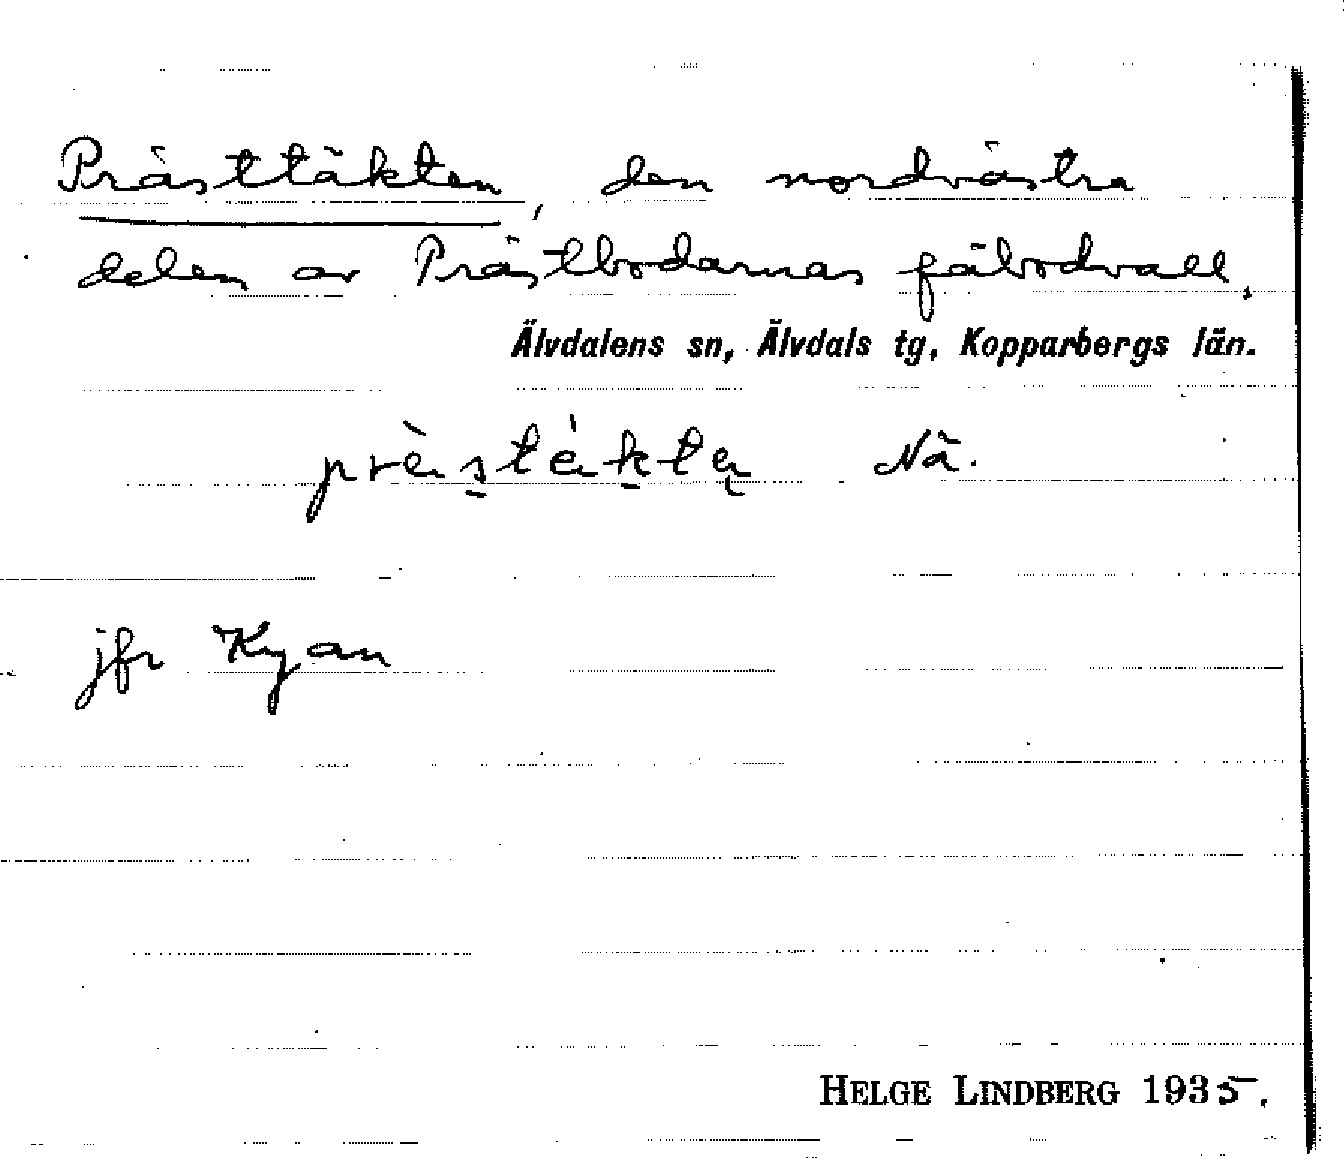 Prästtäkten, den nordvästra
delen av Prästbodarnas fäbodvall,
Älvdalens sn, Älvdals tg, Kopparbergs län.
Nä.
jfr Kyan
HELGE LINDBERG 1935.